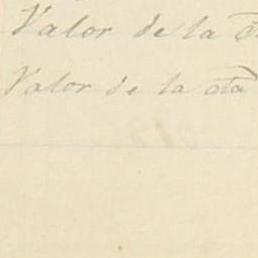 Valor de la
Valor de la cta